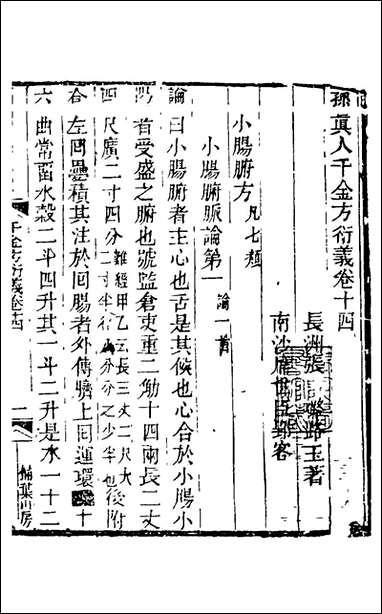 孫真人千金方衍義卷十四
長洲張璐路玉著
南沙席世臣郢客
小腸腑方凡七類
小腸腑脈論第一論一首
論曰小腸腑者主心也舌是其候也心合於小腸小
腸者受盛之腑也號監倉吏重二觔十四兩長二丈
四尺廣二寸四分難經甲乙云長三丈二尺大二寸半徑八分分之少半也後附
脊左囘疊積其注於囘腸者外傳臍上囘運環十
六曲常畱水穀二斗四升其一斗二升是水一十二
千金方衍義卷十四
一
掃葉山房